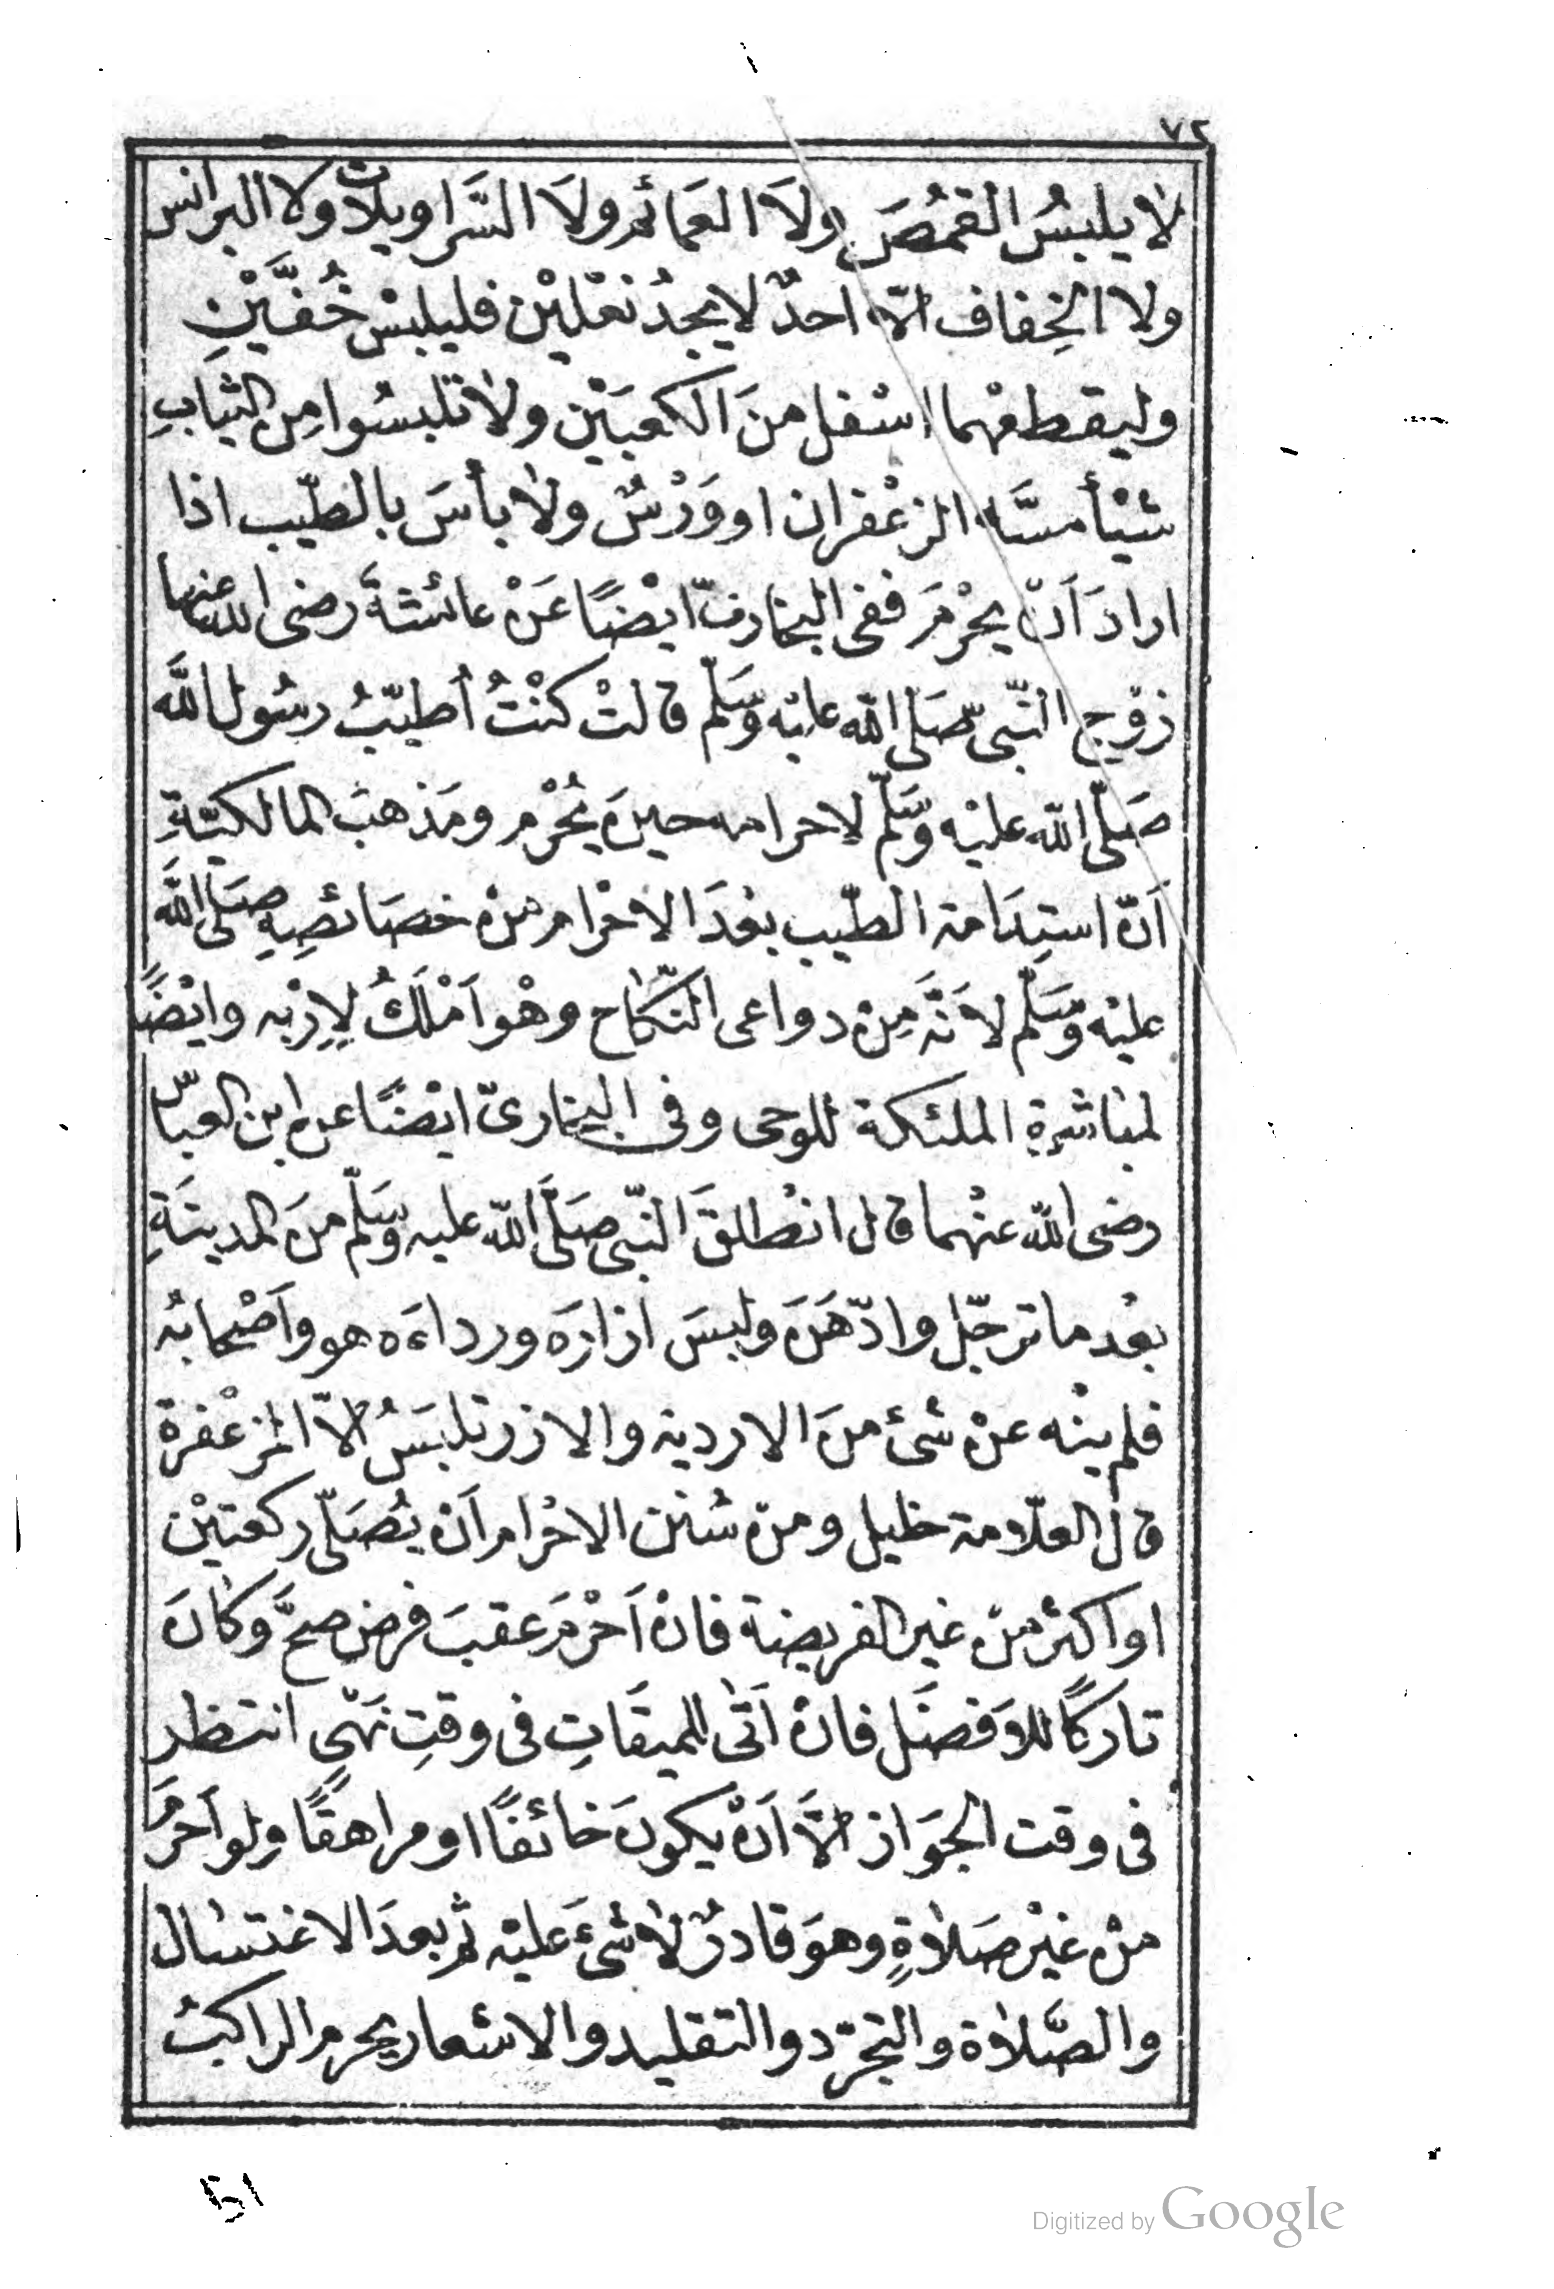 ٧٢
لا يلبسُ القمُصَ ولَا العَمائم ولَا السَّراويلات ولا البرانس
ولا الخِفاف الّا احدٌ لا يجدُ نعْليْن فليلبسْ خُفَّيْنِ
وليقطعْهما اسْفل منَ الكعبَيْن ولا تلبسُوا مِن الثيابِ
شيْأ مسَّه الزعْفران او وَرْسٌ ولا بأسَ بالطّيب اذا
ارادَ اَنْ يحْرمَ ففى البخارىّ ايْضًا عَنْ عائشةَ رضى الله عنها
زوْج النّبىّ صَلى الله عليْه وَسَلّم قالتْ كنْتُ اُطيّبُ رسُول اللَّه
صَلّى الله عليْه وَسَلّم لاحرامه حينَ يُحْرم ومَذهبَ المالكيّةِ
اَنّ استِدَامة الطّيب بعْدَ الاحْرام منْ خصَائصِهِ صَلى اللَّه
عليْه وَسَلّم لاَنَّه مِنْ دواعى النّكاح وهْو اَمْلَكُ لِاِرْبه وايْضًا
لمبَاشرةِ الملئكة للوحى وفى البخارىّ ايْضًا عن ابن العبّاس
رضى الله عنْهما قال انْطلقَ النّبى صَلَّى الله عليه وَسَلّم منَ المدينَةِ
بعْد ما ترجّل وادّهَنَ ولبسَ ازارَه ورداءَه هو واَصْحابُه
فلم ينْه عنْ شىْء منَ الارديه والازر تلبَسُ الّا المزعْفرة
قال العلّامة خليل ومنْ سُنن الاحْرام اَنْ يُصَلّى ركعتيْن
او اكثر منْ غير الفريضة فانْ اَحْرمَ عقبَ فرض صحَّ وكانَ
تاركًا للاَفضَل فانْ اَتَى الميقَاتِ فى وقتِ نَهْىٍ انتظر
فى وقت الجَواز الَّا اَنْ يكونَ خائفًا او مراهقًا ولو اَحْرمَ
منْ غيْر صَلاةٍ وهوَ قادرٌ لا شىْءَ عليْه ثم بعدَ الاغتسَال
والصَّلاة والتجرّد والتقليد والاشعار يحرم الراكبُ
51
Digitized by Google